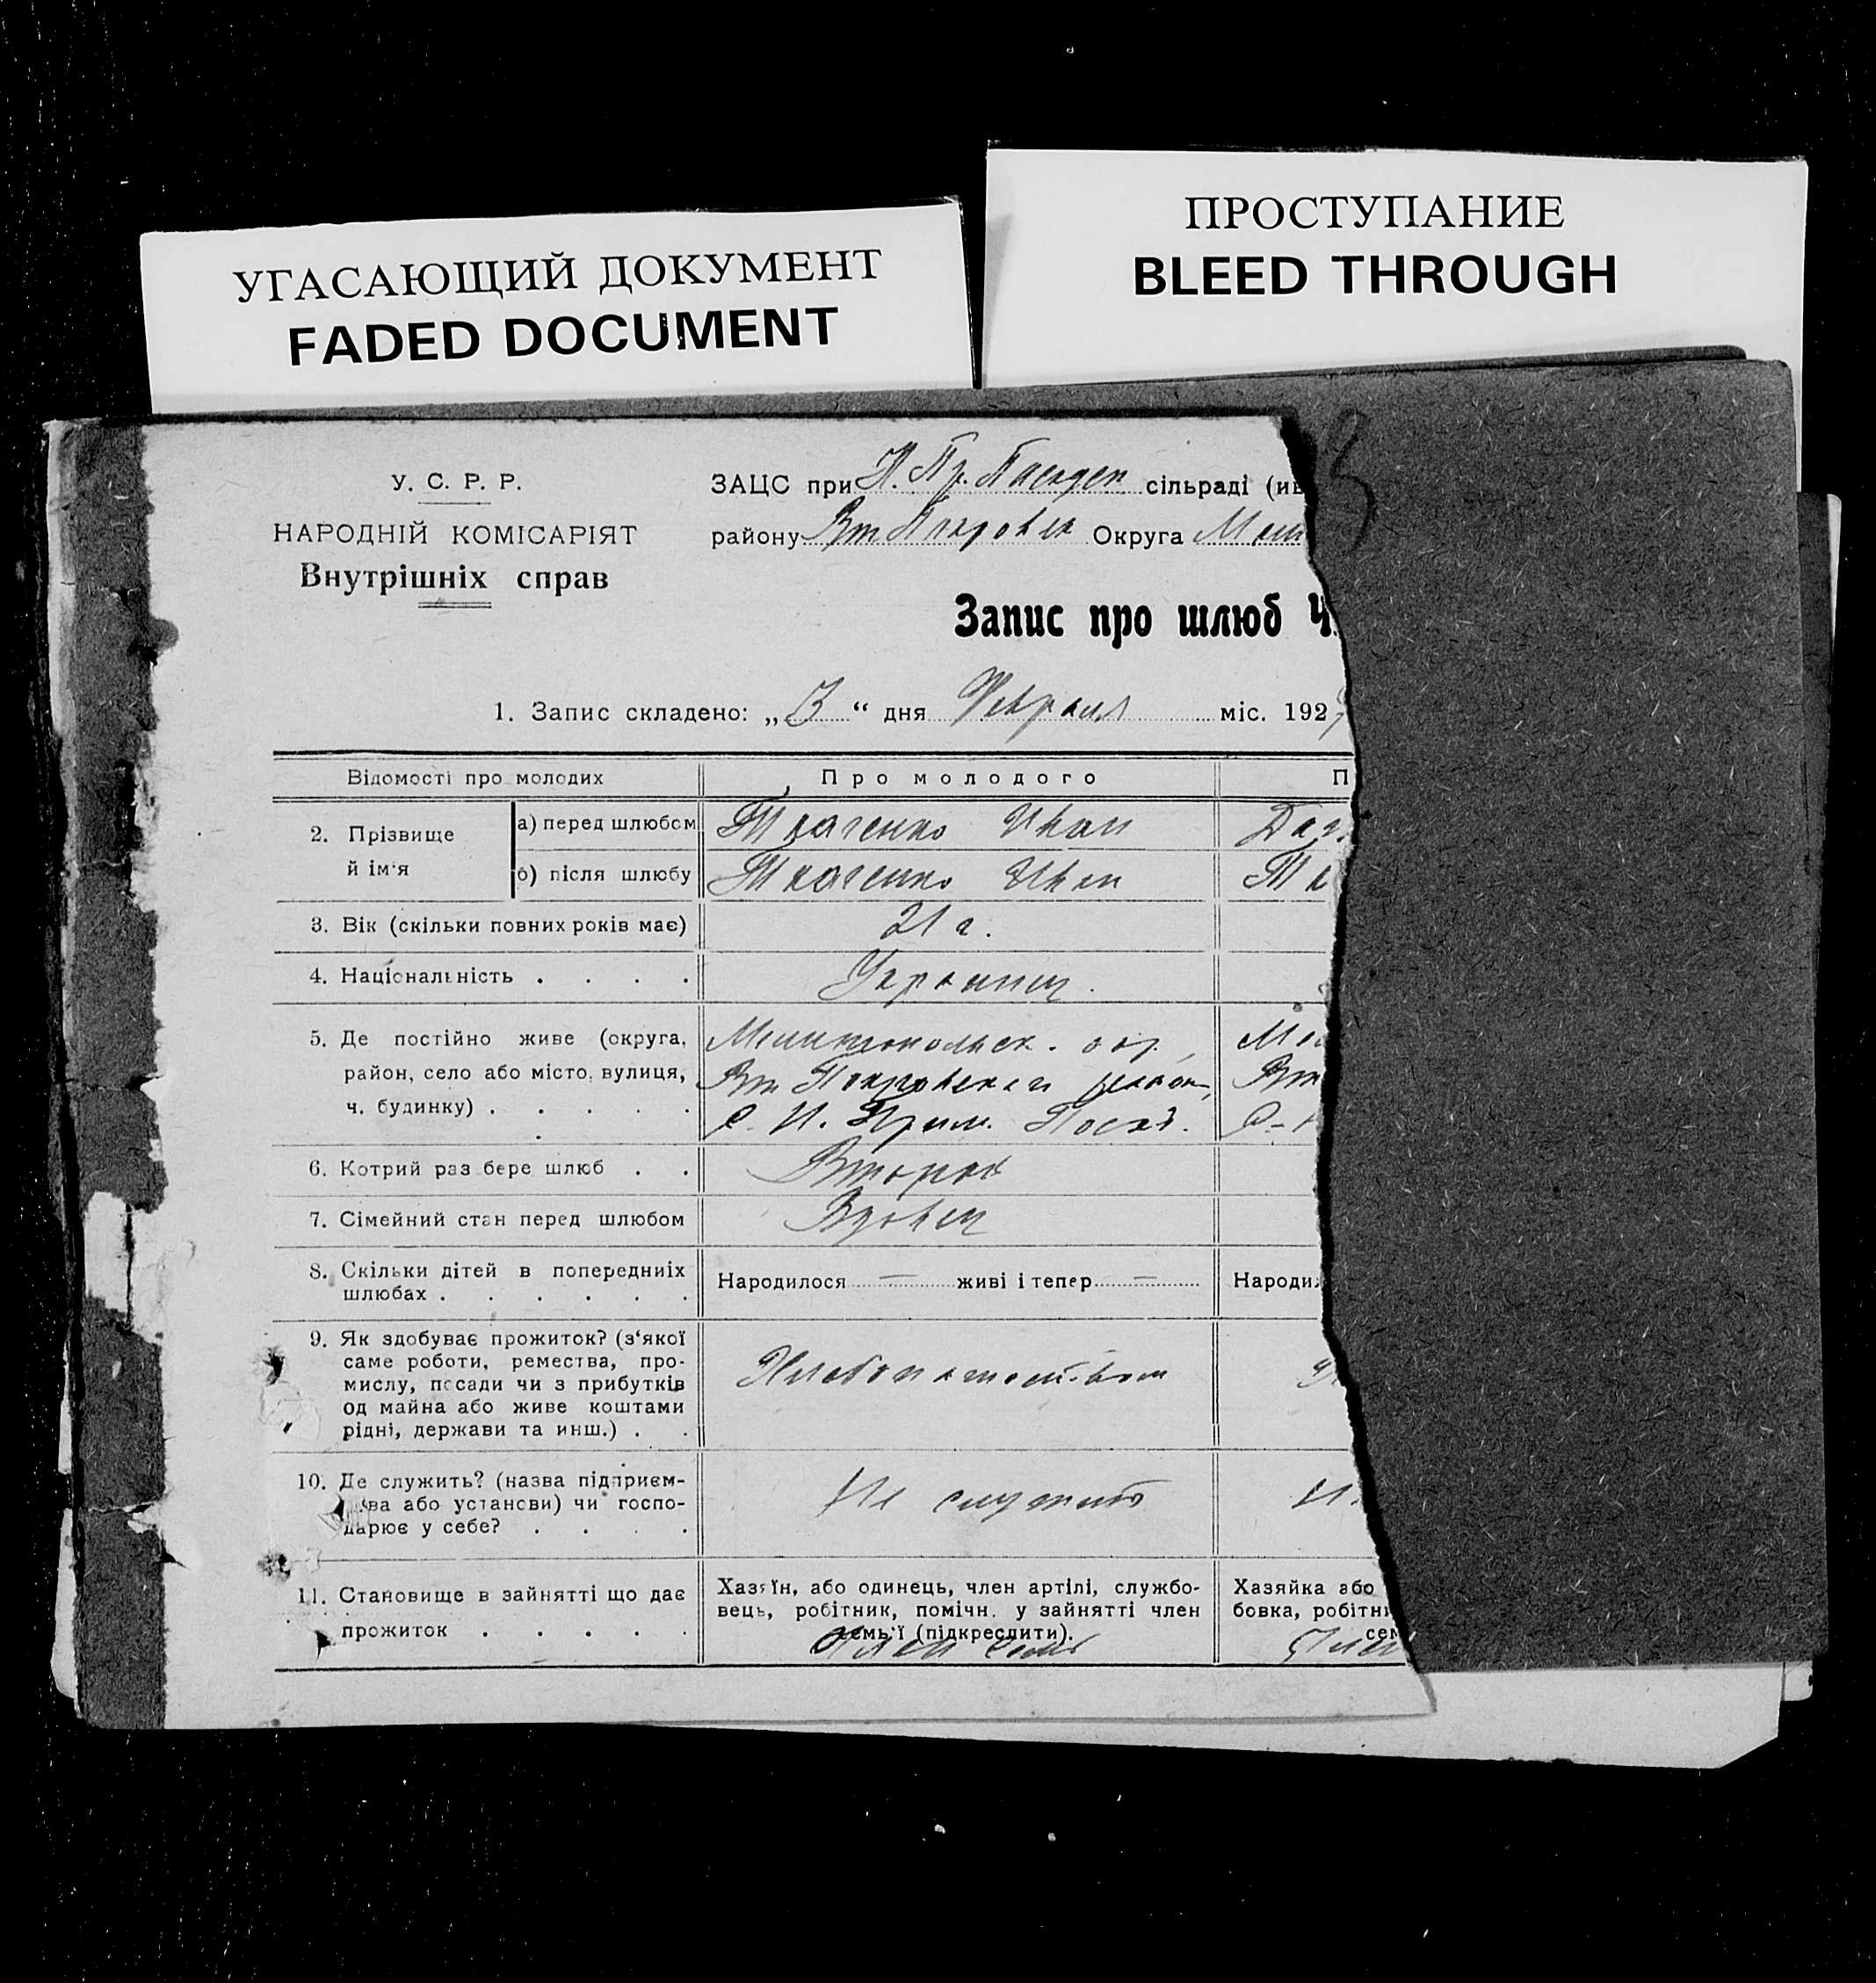 УГАСАЮЩИЙ ДОКУМЕНТ
FADED DOCUMENT
ПРОСТУПАНИЕ
BLEED THROUGH
У. С. Р. Р.
НАРОДНІЙ КОМІСАРІЯТ
Внутрішніх справ
ЗАЦС при Н. Пр. Посадск сільраді (ин
району Вт Покровск Округа Мели
Запис про шлюб Ч.
1. Запис складено: „3“ дня Февраля міс. 192
Відомості про молодих Про молодого П
2. Прізвище й ім'я а) перед шлюбом Ткаченко Иван
б) після шлюбу Ткаченко Иван Тк
3. Вік (скільки повних років має) 21 г.
4. Національність . . . . Украинец.
5. Де постійно живе (округа, Мелитопольск. окр, Мел
район, село або місто, вулиця, Вт Покровский район, Вт
ч. будинку) . . . . . С. Н. Прим. Посад. С-
6. Котрий раз бере шлюб . . Второй
7. Сімейний стан перед шлюбом Вдовец
8. Скільки дітей в попередніх Народилося — живі і тепер — Народи
шлюбах . . . . . .
9. Як здобуває прожиток? (з'якої
саме роботи, ремества, про-
мислу, посади чи з прибутків Хлебопашеством
од майна або живе коштами
рідні, держави та инш.) . .
10. Де служить? (назва підприєм-
ва або установи) чи госпо- Не служит Н
дарює у себе? . . . .
11. Становище в зайнятті що дає Хазяїн, або одинець, член артілі, службо- Хазяйка або
вець, робітник, помічн. у зайнятті член бовка, робітни
прожиток . . . . . семь'ї (підкреслити). сем
Член семьи Член